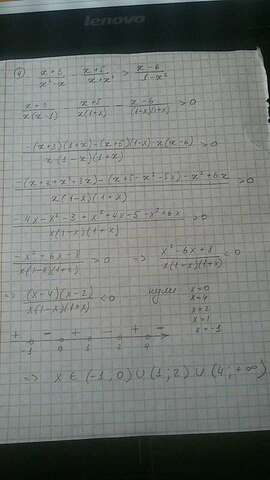 lenovo
④ (x+3)/(x²-x) - (x+5)/(x+x²) > (x-6)/(1-x²)
(x+3)/(x(x-1)) - (x+5)/(x(1+x)) - (x-6)/((1-x)(1+x)) > 0
(-(x+3)(1+x) - (x+5)(1-x) - x(x-6))/(x(1-x)(1+x)) > 0
(-(x+3+x²+3x) - (x+5-x²-5x) - x²+6x)/(x(1-x)(1+x)) > 0
(-4x-x²-3+x²+4x-5-x²+6x)/(x(1-x)(1+x)) > 0
(-x²+6x-8)/(x(1-x)(1+x)) > 0 ⇒ (x²-6x+8)/(x(1-x)(1+x)) < 0
⇒ ((x-4)(x-2))/(x(1-x)(1+x)) < 0 нули: x=0
x=4
x=2
x=1
x=-1
+ - + - + -
-1 0 1 2 4
⇒ x ∈ (-1; 0) ∪ (1; 2) ∪ (4; +∞)